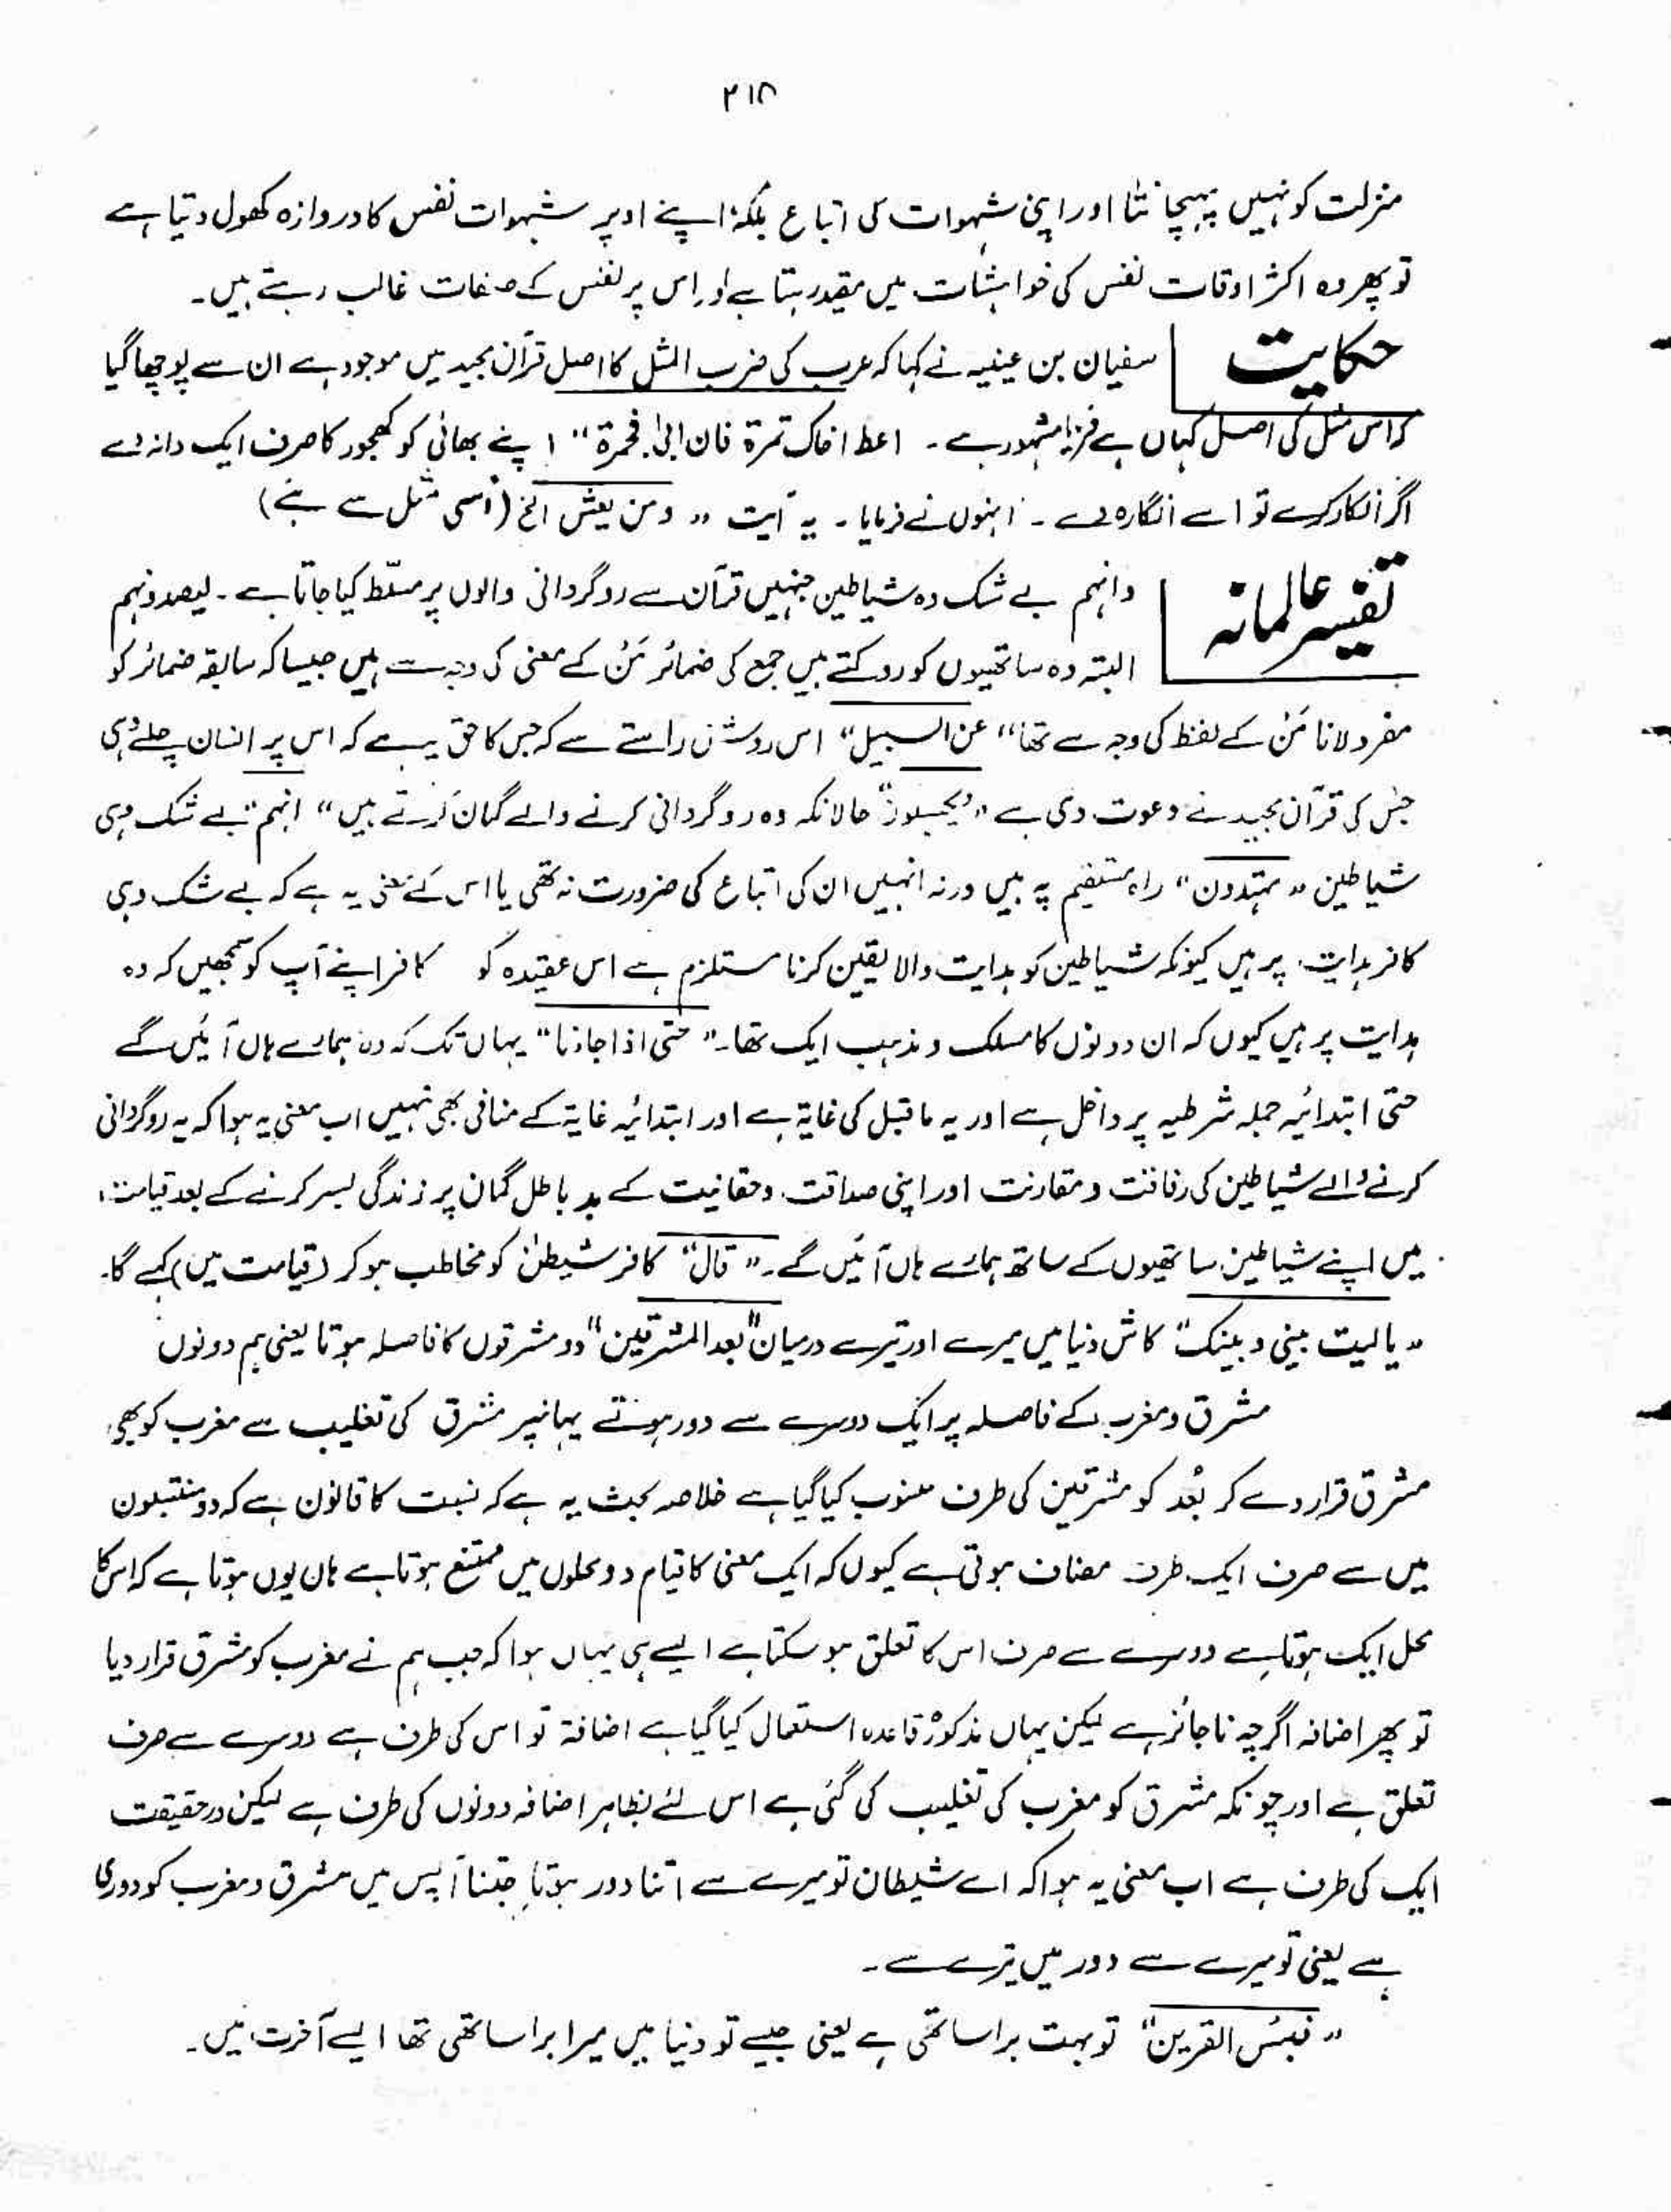 ۲۱۸
منزلت کو نہیں پہچانتا اور اپنی شہوات کی اتباع بلکہ اپنے اوپر شہوات نفس کا دروازہ کھول دیتا ہے
تو پھر وہ اکثر اوقات نفس کی خواہشات میں مقید رہتا ہے اور اس پر نفس کے صفات غالب رہتے ہیں۔
حکایت
سفیان بن عینیہ نے کہا کہ عرب کی ضرب المثل کا اصل قرآن مجید میں موجود ہے ان سے پوچھا گیا
کہ اس مثل کی اصل کہاں ہے فرمایا مشہور ہے ۔ اعط اخاک تمرۃ فان ابیٰ فجمرۃ" اپنے بھائی کو کھجور کا صرف ایک دانہ دے
اگر انکار کرے تو اسے انگارہ دے ۔ انہوں نے فرمایا ۔ یہ آیت " ومن یعش الخ (اسی مثل سے ہے)
تفسیر عالمانہ
وانہم بے شک وہ شیاطین جنہیں قرآن سے روگردانی والوں پر مسلّط کیا جاتا ہے ۔ لیصدونہم
البتہ وہ ساتھیوں کو روکتے ہیں جمع کی ضمائر مَنْ کے معنی کی وجہ سے ہیں جیسا کہ سابقہ ضمائر کو
مفرد لانا مَنْ کے لفظ کی وجہ سے تھا" عن السبیل" اس روشن راستے سے کہ جس کا حق یہ ہے کہ اس پر انسان چلے وہی
جس کی قرآن مجید نے دعوت دی ہے " ویحسبون" حالانکہ وہ روگردانی کرنے والے گمان کرتے ہیں" انہم" بے شک وہی
شیاطین " مہتدون" راہ مستقیم پہ ہیں ورنہ انہیں ان کی اتباع کی ضرورت نہ تھی یا اس کے معنی یہ ہے کہ بے شک وہی
کافر ہدایت پر ہیں کیونکہ شیاطین کو ہدایت والا یقین کرنا مستلزم ہے اس عقیدہ کو کافر اپنے آپ کو سمجھیں کہ وہ
ہدایت پر ہیں کیوں کہ ان دونوں کا مسلک و مذہب ایک تھا۔ " حتی اذا جاءنا" یہاں تک کہ وہ ہمارے ہاں آئیں گے
حتی ابتدائیہ جملہ شرطیہ پر داخل ہے اور یہ ما قبل کی غایۃ ہے اور ابتدائیہ غایۃ کے منافی بھی نہیں اب معنی یہ ہوا کہ یہ روگردانی
کرنے والے شیاطین کی رفاقت و مقارنت اور اپنی صداقت و حقانیت کے بد باطل گمان پر زندگی بسر کرنے کے بعد قیامت
میں اپنے شیاطین ساتھیوں کے ساتھ ہمارے ہاں آئیں گے۔ " قال" کافر شیطٰن کو مخاطب ہو کر (قیامت میں) کہے گا۔
" یالیت بینی و بینک" کاش دنیا میں میرے اور تیرے درمیان "بعد المشرقین" دو مشرقوں کا فاصلہ ہوتا یعنی ہم دونوں
مشرق و مغرب کے فاصلہ پر ایک دوسرے سے دور ہوتے یہانپر مشرق کی تغلیب سے مغرب کو بھی
مشرق قرار دے کر بُعْد کو مشرقین کی طرف منسوب کیا گیا ہے خلاصہ بحث یہ ہے کہ نسبت کا قانون ہے کہ دو منتسبون
میں سے صرف ایک طرف مضاف ہوتی ہے کیوں کہ ایک معنی کا قیام دو محلوں میں ممتنع ہوتا ہے ہاں یوں ہوتا ہے کہ اس کا
محل ایک ہوتا ہے دوسرے سے صرف اس کا تعلق ہو سکتا ہے ایسے ہی یہاں ہوا کہ جب ہم نے مغرب کو مشرق قرار دیا
تو پھر اضافہ اگرچہ ناجائز ہے لیکن یہاں مذکورہ قاعدہ استعمال کیا گیا ہے اضافۃ تو اس کی طرف ہے دوسرے سے صرف
تعلق ہے اور چونکہ مشرق کو مغرب کی تغلیب کی گئی ہے اس لئے بظاہر اضافہ دونوں کی طرف ہے لیکن در حقیقت
ایک کی طرف ہے اب معنی یہ ہوا کہ اے شیطان تو میرے سے اتنا دور ہوتا جتنا آپس میں مشرق و مغرب کو دوری
ہے یعنی تو میرے سے دور میں تیرے سے۔
" فبئس القرین" تو بہت برا ساتھی ہے یعنی جیسے تو دنیا میں میرا برا ساتھی تھا ایسے آخرت میں۔